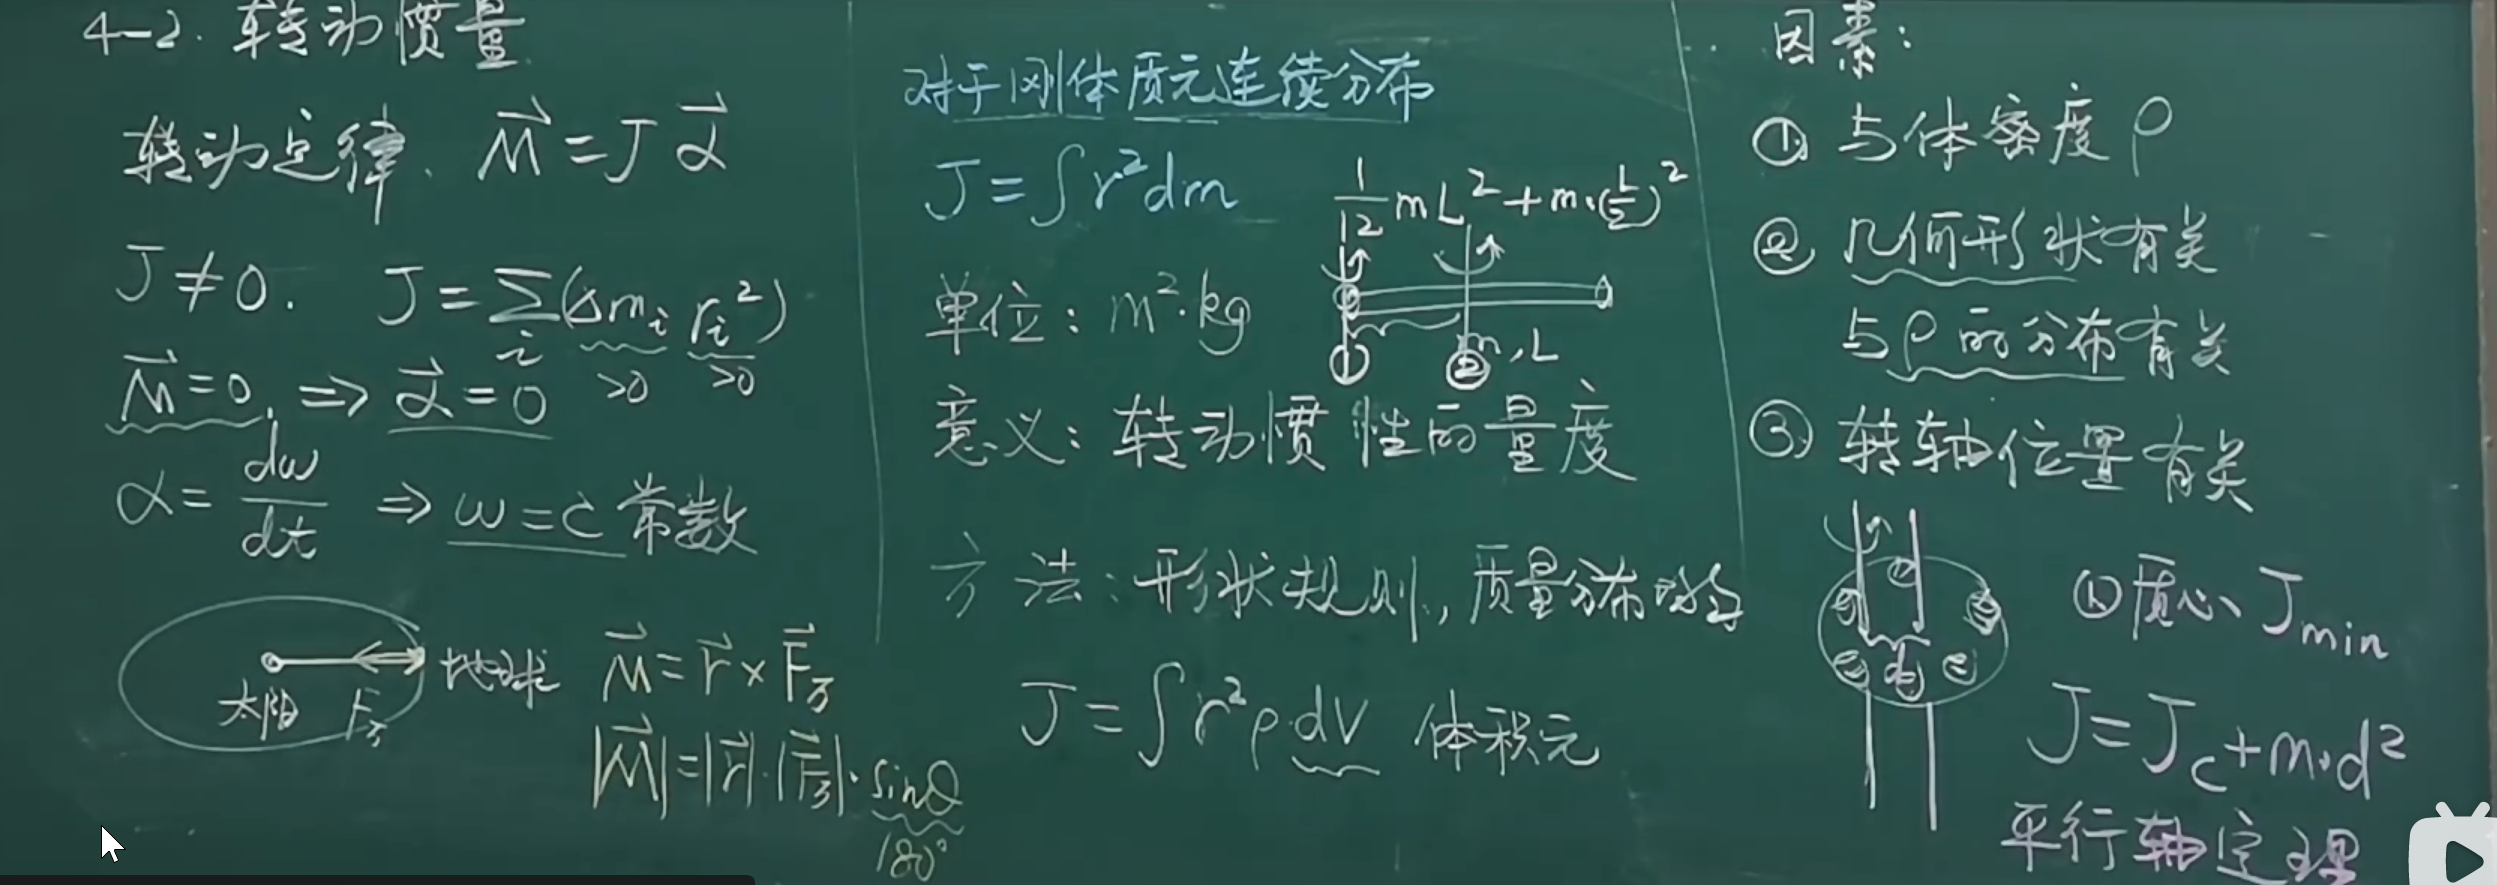 4-2. 转动惯量
转动定律、 M⃗ = J α⃗
J ≠ 0. J = Σᵢ (Δmᵢ rᵢ²)
>0 >0
M⃗ = 0, ⇒ α⃗ = 0
α = dω/dt ⇒ ω = C 常数
太阳 F万 地球
M⃗ = r⃗ × F⃗万
|M⃗| = |r⃗|·|F⃗万|·sinθ
180°
对于刚体质元连续分布
J = ∫r²dm
1/12 mL² + m·(L/2)²
单位: m²·kg
① ② m, L
意义: 转动惯性的量度
方法: 形状规则, 质量分布均匀
J = ∫r²ρ·dV 体积元
因素:
① 与体密度 ρ
② 几何形状有关
与ρ的分布有关
③ 转轴位置有关
d
①质心、Jmin
J = Jc + m·d²
平行轴定理